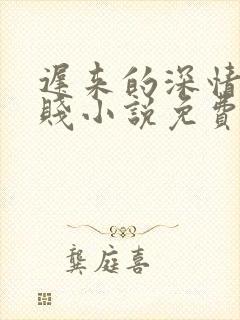 遲来的深情
賤小說免費
龔庭喜